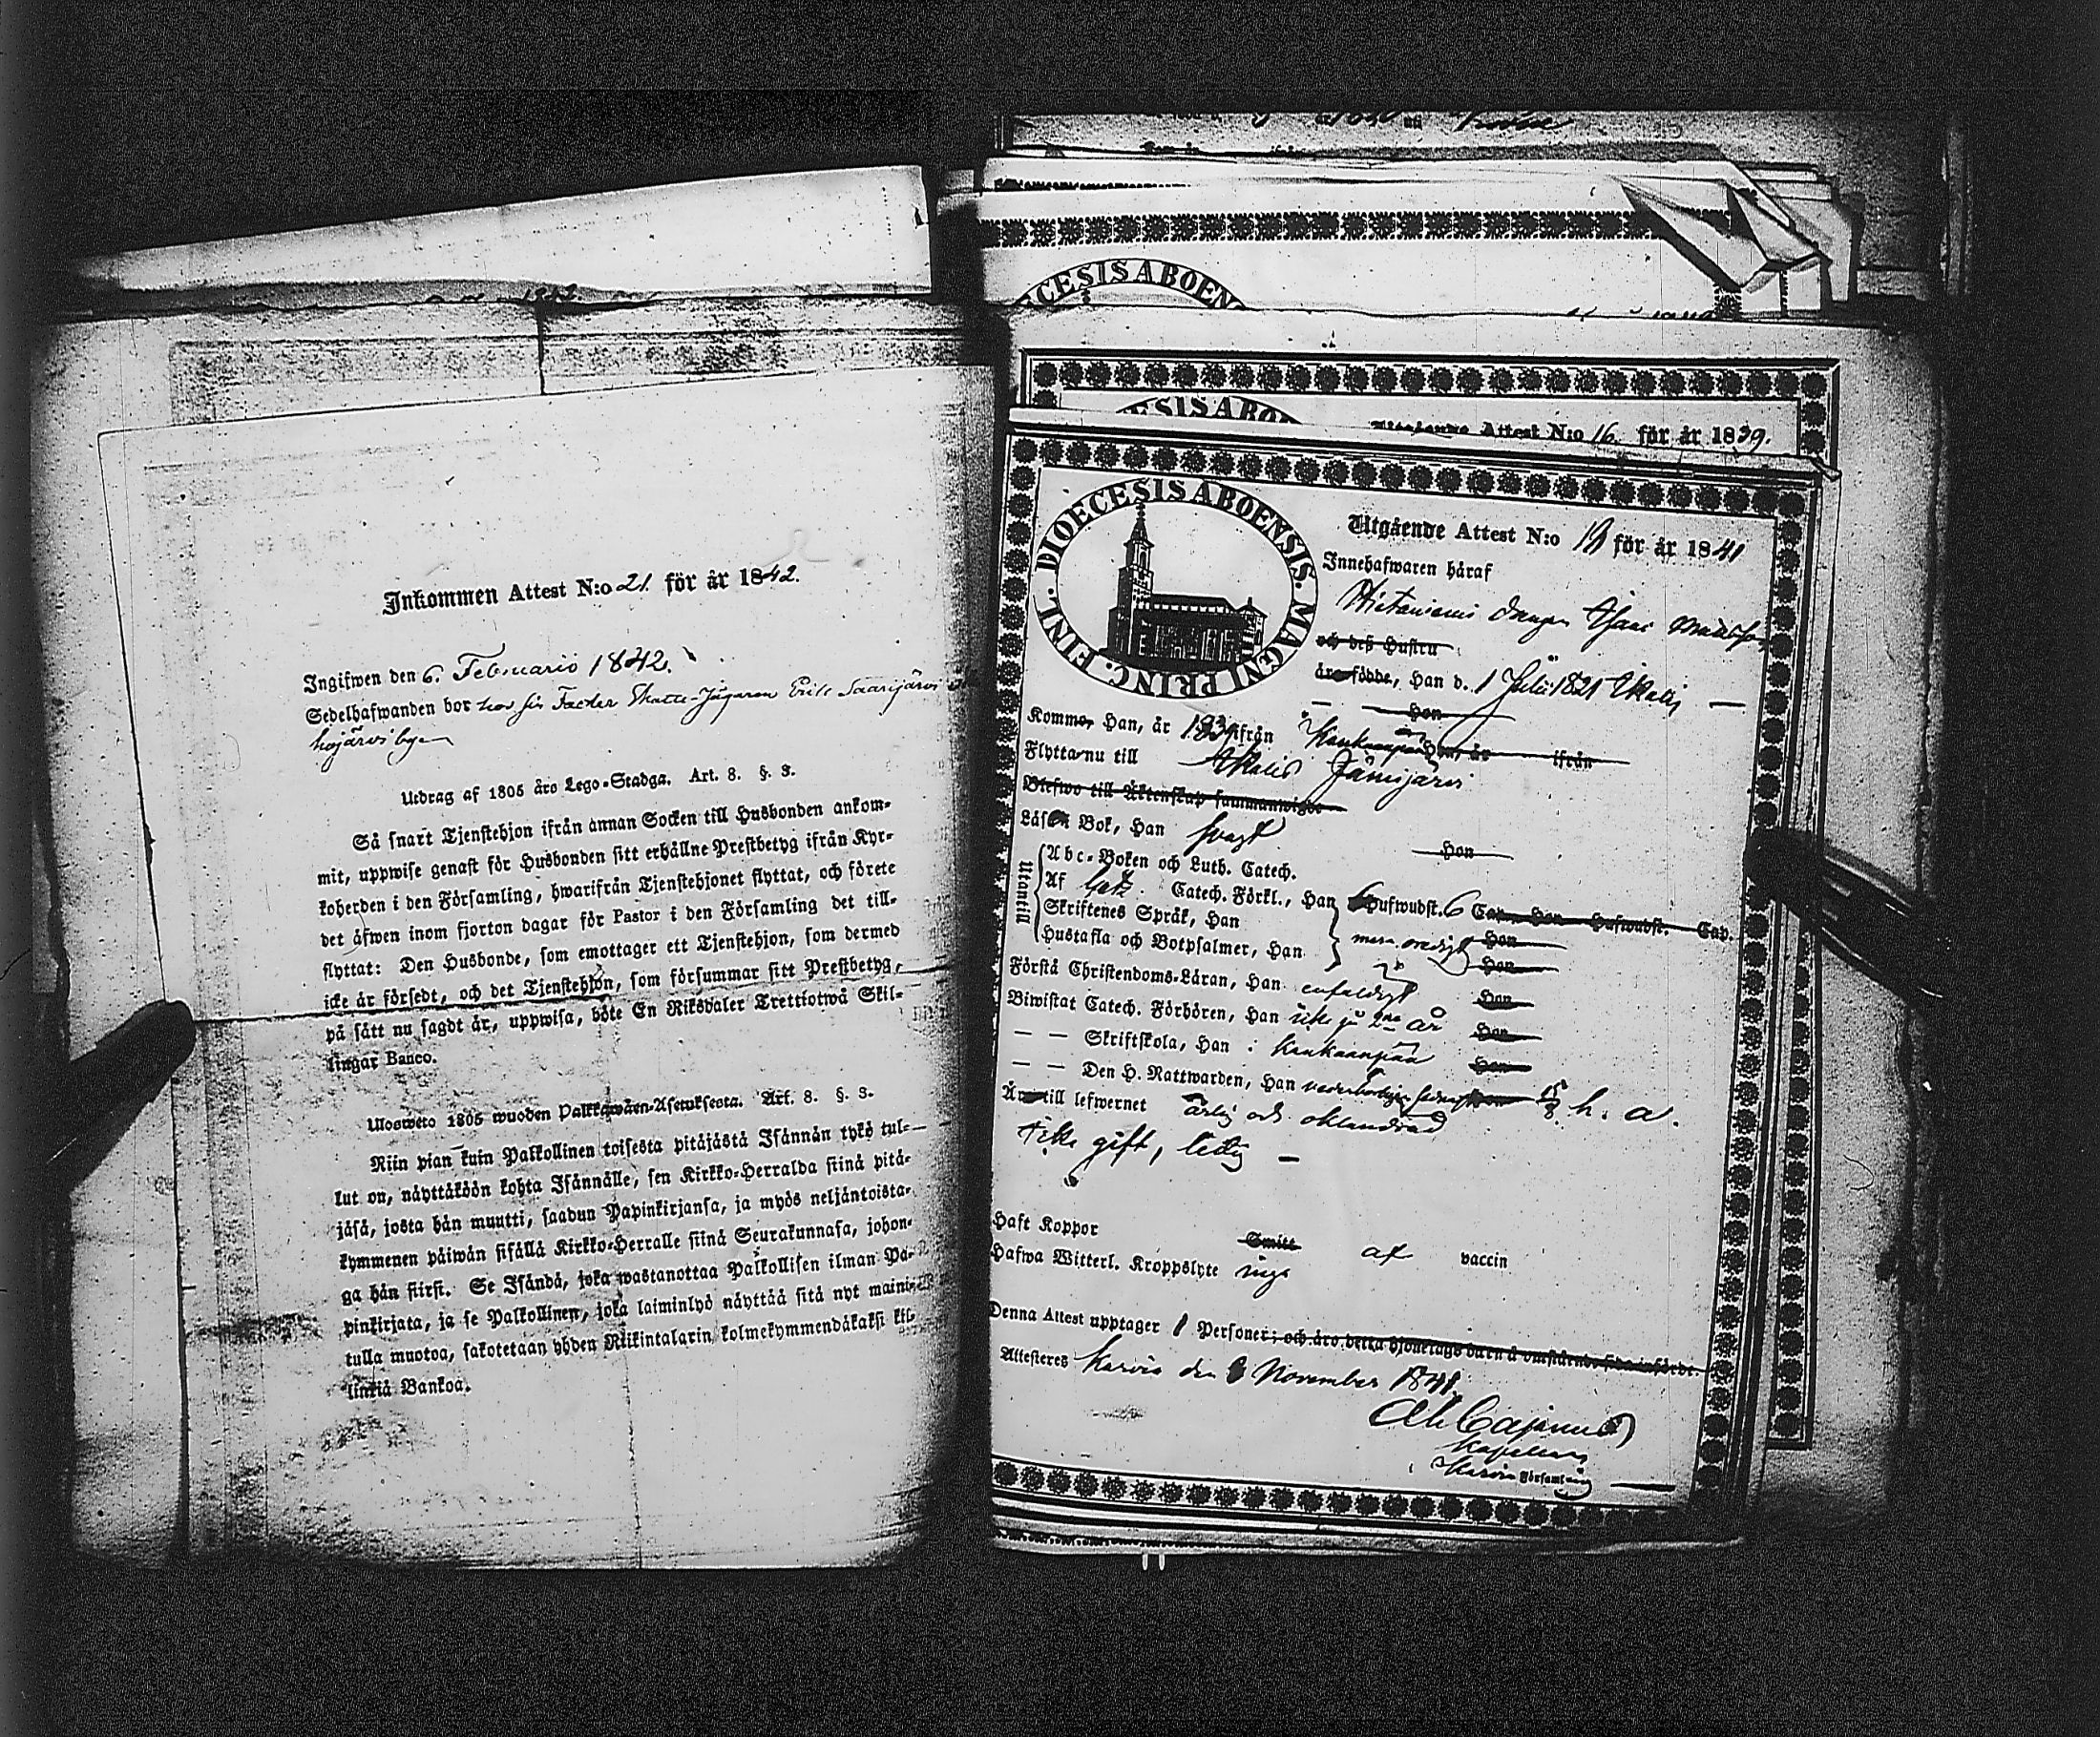 1842.
Inkommen Attest N:o 21. för år 1842.
Ingifwen den 6. Februario 1842.
Sedelhafwanden bor hos sin Fader Skatte-Jägaren Erik Saarijärvi
byn
Utdrag af 1805 års Lego-Stadga. Art. 8. §. 3.
Så snart Tjenstehjon ifrån annan Socken till Husbonden ankom-
mit, uppwise genast för Husbonden sitt erhållne Prestbetyg ifrån Kyr-
koherden i den Församling, hwarifrån Tjenstehjonet flyttat, och förete
det äfwen inom fjorton dagar för Pastor i den Församling det till-
flyttat: Den Husbonde, som emottager ett Tjenstehjon, som dermed
icke är försedt, och det Tjenstehjon, som försummar sitt Prestbetyg,
på sätt nu sagdt är, uppwisa, böte En Riksdaler Trettiotwå Skil-
lingar Banco.
Ulosweto 1805 wuoden Palkkawäen-Asetuksesta. Art. 8. §. 3.
Niin pian kuin Palkollinen toisesta pitäjästä Isännän tykö tul-
lut on, näyttäköön kohta Isännälle, sen Kirkko-Herralda siinä pitä-
jäsä, josta hän muutti, saadun Papinkirjansa, ja myös neljäntoista-
kymmenen päiwän sisällä Kirkko-Herralle siinä Seurakunnasa, johon-
ga hän siirsi. Se Isändä, joka wastanottaa Palkollisen ilman Pa-
pinkirjata, ja se Palkollinen, joka laiminlyö näyttää sitä nyt maini-
tulla muotoa, sakotetaan yhden Riikintalarin kolmekymmendäkaksi kil-
linkiä Bankoa.
DIOECESIS ABOENS
Utgående Attest N:o 16. för år 1839.
FINL. DIOECESIS ABOENSIS. MAGNI PRINC.
Utgående Attest N:o för år 1841
Innehafwaren häraf
Drängen Isaac
och deß Hustru
äro födde, Han d. 1 Julii 1821 Ikalis —
— Hon
Kommo, Han, år 1839 ifrån Kankaanpää Hon, år ifrån
Flytta nu till Ikalis Jämijärvi
Blefwo till Äktenskap sammanwigde
Läsa i Bok, Han svagt Hon
Utantill
Abc-Boken och Luth. Catech.
Af Catech. Förkl., Han Hufwudst. 6 Cap. Hon Hufwudst. Cap.
Skriftenes Språk, Han Hon
Hustafla och Botpsalmer, Han Hon
Förstå Christendoms-Läran, Han enfaldigt Hon
Biwistat Catech. Förhören, Han Hon
— — Skriftskola, Han i Kankaanpää Hon
— — Den H. Nattwarden, Han Hon h. a.
Äro till lefwernet ärlig och oklandrad
Icke gift, ledig —
Haft Koppor Smitt af vaccin
Hafwa Witterl. Kroppslyte inga
Denna Attest upptager 1 Personer; och äro detta hjonelags barn å omstående sida införde.
Attesteres Karvia den November 1841.
Cajanus
Kapellan
Karvia Församling